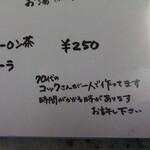 お湯
ーロン茶 ¥250
ーラ
70代の
コックさんが一人で作ってます
時間がかかる時があります
お許し下さい